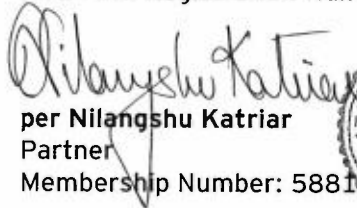 Nilangshu Katriar
per Nilangshu Katriar
Partner
Membership Number: 5881